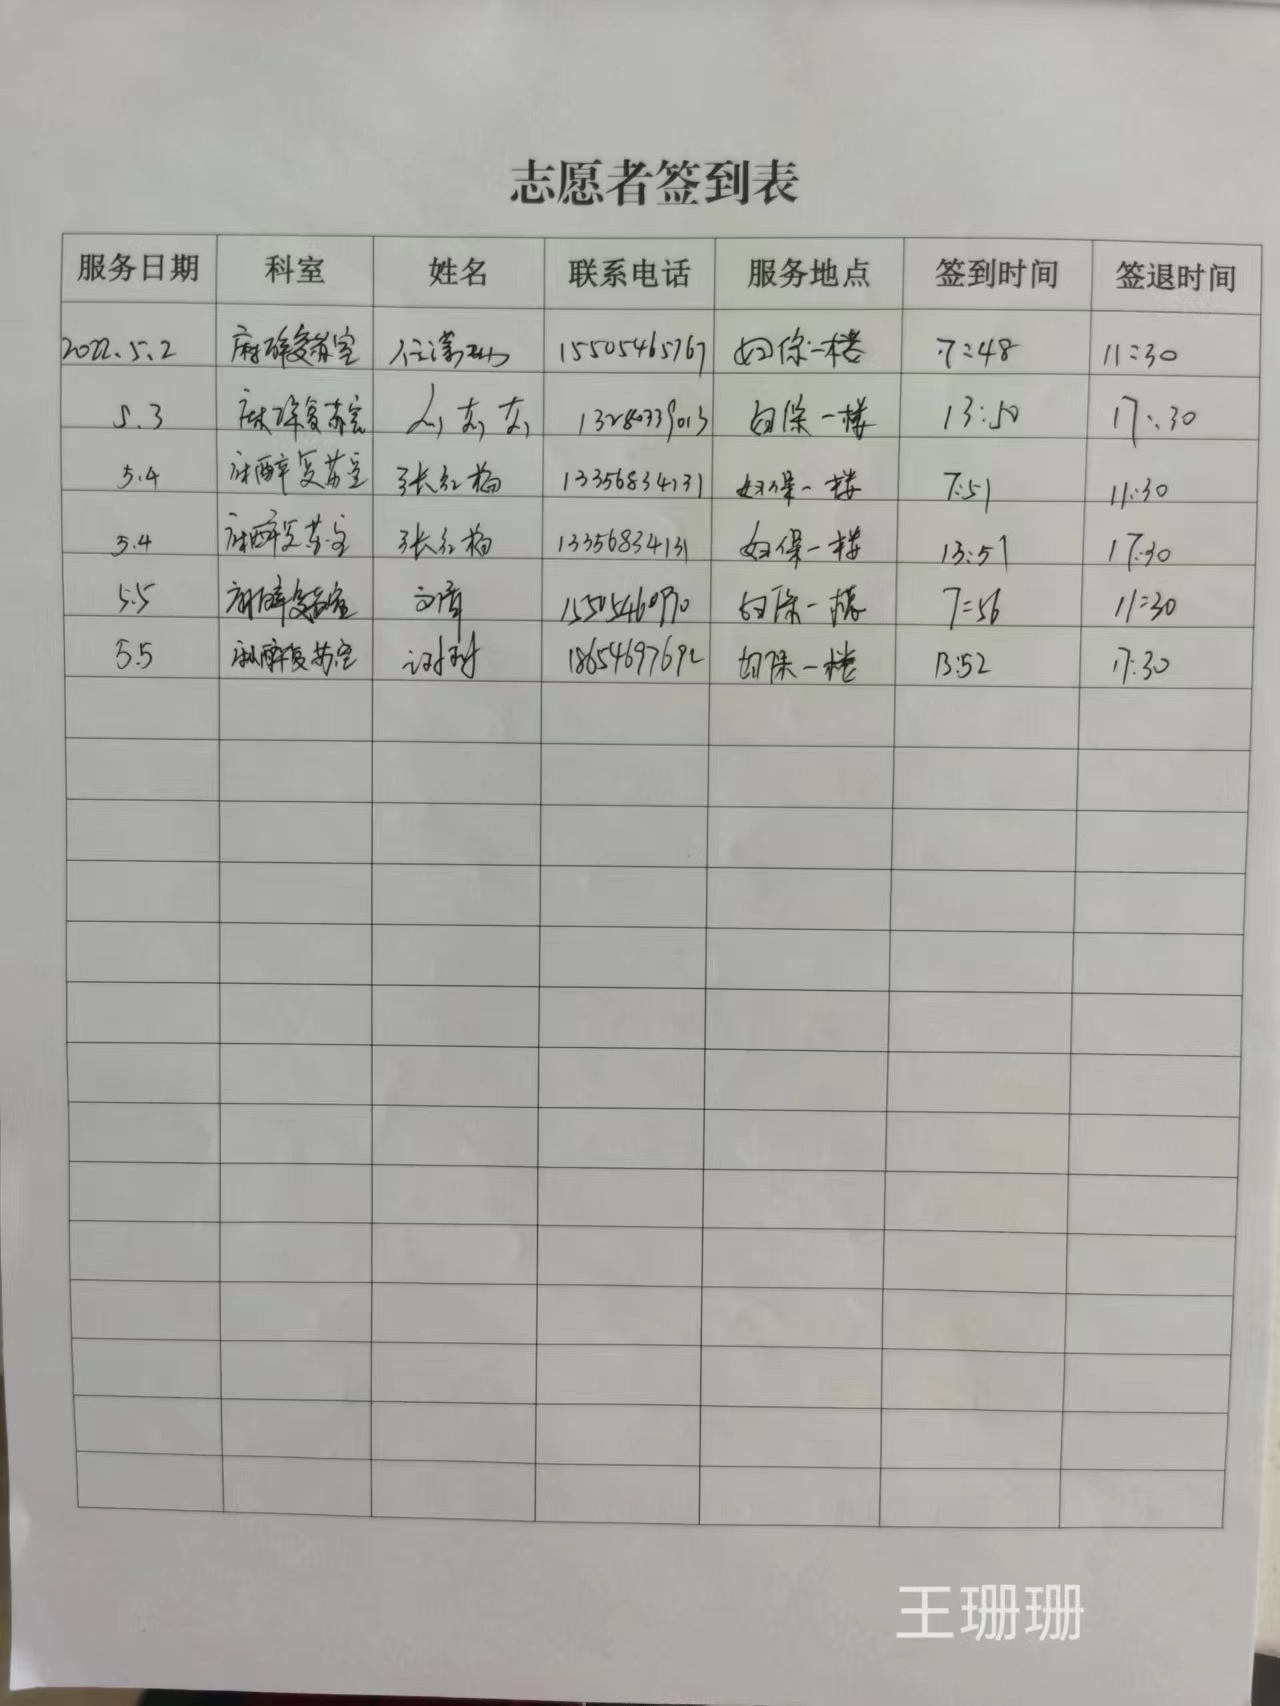 志愿者签到表
服务日期 科室 姓名 联系电话 服务地点 签到时间 签退时间
2022.5.2 麻醉复苏室 15505465767 妇保一楼 7:48 11:30
5.3 麻醉复苏室 13280339013 妇保一楼 13:50 17:30
5.4 麻醉复苏室 张红梅 13356834131 妇保一楼 7:51 11:30
5.4 麻醉复苏室 张红梅 13356834131 妇保一楼 13:51 17:30
5.5 麻醉复苏室 妇保一楼 7:56 11:30
5.5 麻醉复苏室 18654697692 妇保一楼 13:52 17:30
王珊珊